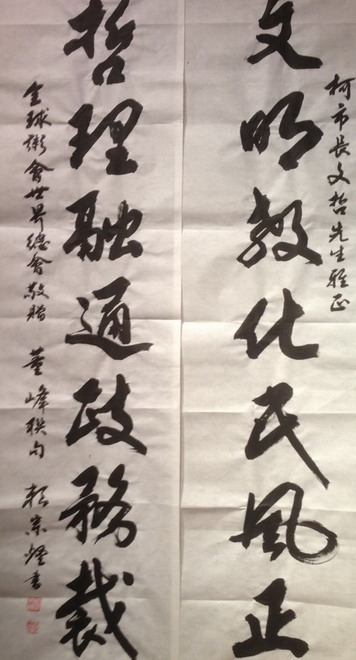 柯市長文哲先生雅正
文明教化民風正
哲理融通政務裁
全球粥會世界總會敬贈 董峰聯句 賴宗書